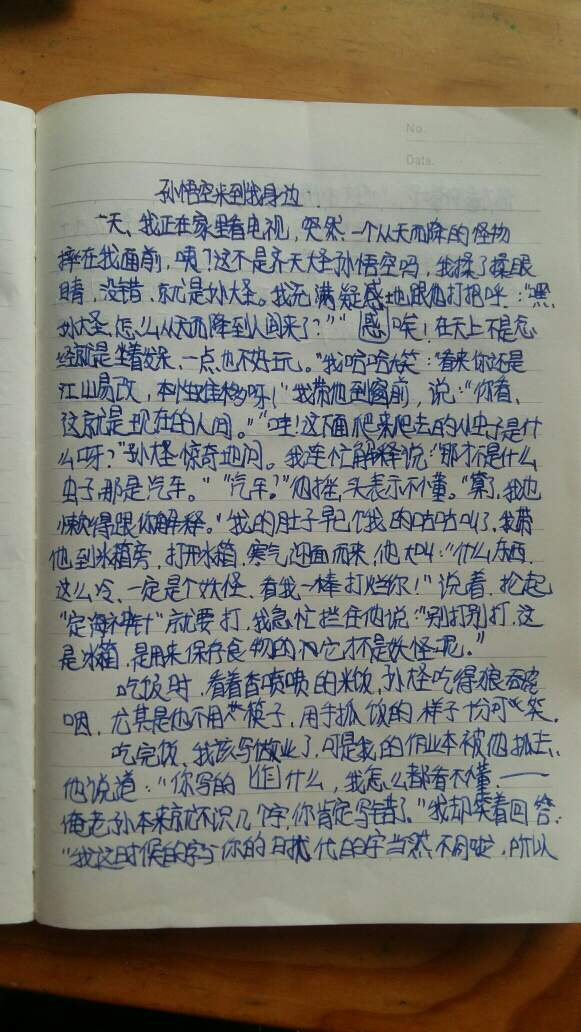 No.
Date.
孙悟空来到我身边
一天、我正在家里看电视，突然、一个从天而降的怪物
摔在我面前，咦？这不是齐天大圣孙悟空吗，我揉了揉眼
睛，没错，就是孙大圣。我充满疑惑地跟他打招呼："嘿，
孙大圣，怎么从天而降到人间来了？""唉！在天上不是念
经就是坐着发呆、一点也不好玩。"我哈哈大笑："看来你还是
江山易改，本性难移呀！"我带他到窗前，说："你看、
这就是现在的人间。""哇！这下面爬来爬去的小虫子是什
么呀？"孙大圣惊奇地问。我连忙解释说："那才不是什么
虫子，那是汽车。""汽车？"他挫头表示不懂。"算了，我也
懒得跟你解释。"我的肚子早已饿的咕咕叫了，我带
他到冰箱旁，打开冰箱，寒气迎面而来，他大叫："什么东西，
这么冷、一定是个妖怪、看我一棒打烂你！"说着，抡起
"定海神针"就要打，我急忙拦住他说："别打别打，这
是冰箱，是用来保存食物的，它才不是妖怪呢。"
吃饭时，看着香喷喷的米饭，孙大圣吃得狼吞虎
咽，尤其是他不用筷子，用手抓饭的样子十分可笑。
吃完饭，我该写做业了，可是我的作业本被他抓去，
他说道："你写的是什么，我怎么都看不懂，——
俺老孙本来就不识几个字，你肯定写错了。"我却笑着回答：
"我这时候的字与你的时代的字当然不同啦，所以